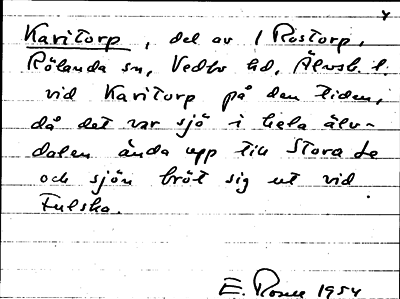 Karitorp, del av 1 Rostorp,
Rölanda sn, Vedbo hd, Älvsb. l.
vid Karitorp på den tiden,
då det var sjö i hela älv-
dalen ända upp till Stora Le
och sjön bröt sig ut vid
Fulska.
E. 1954